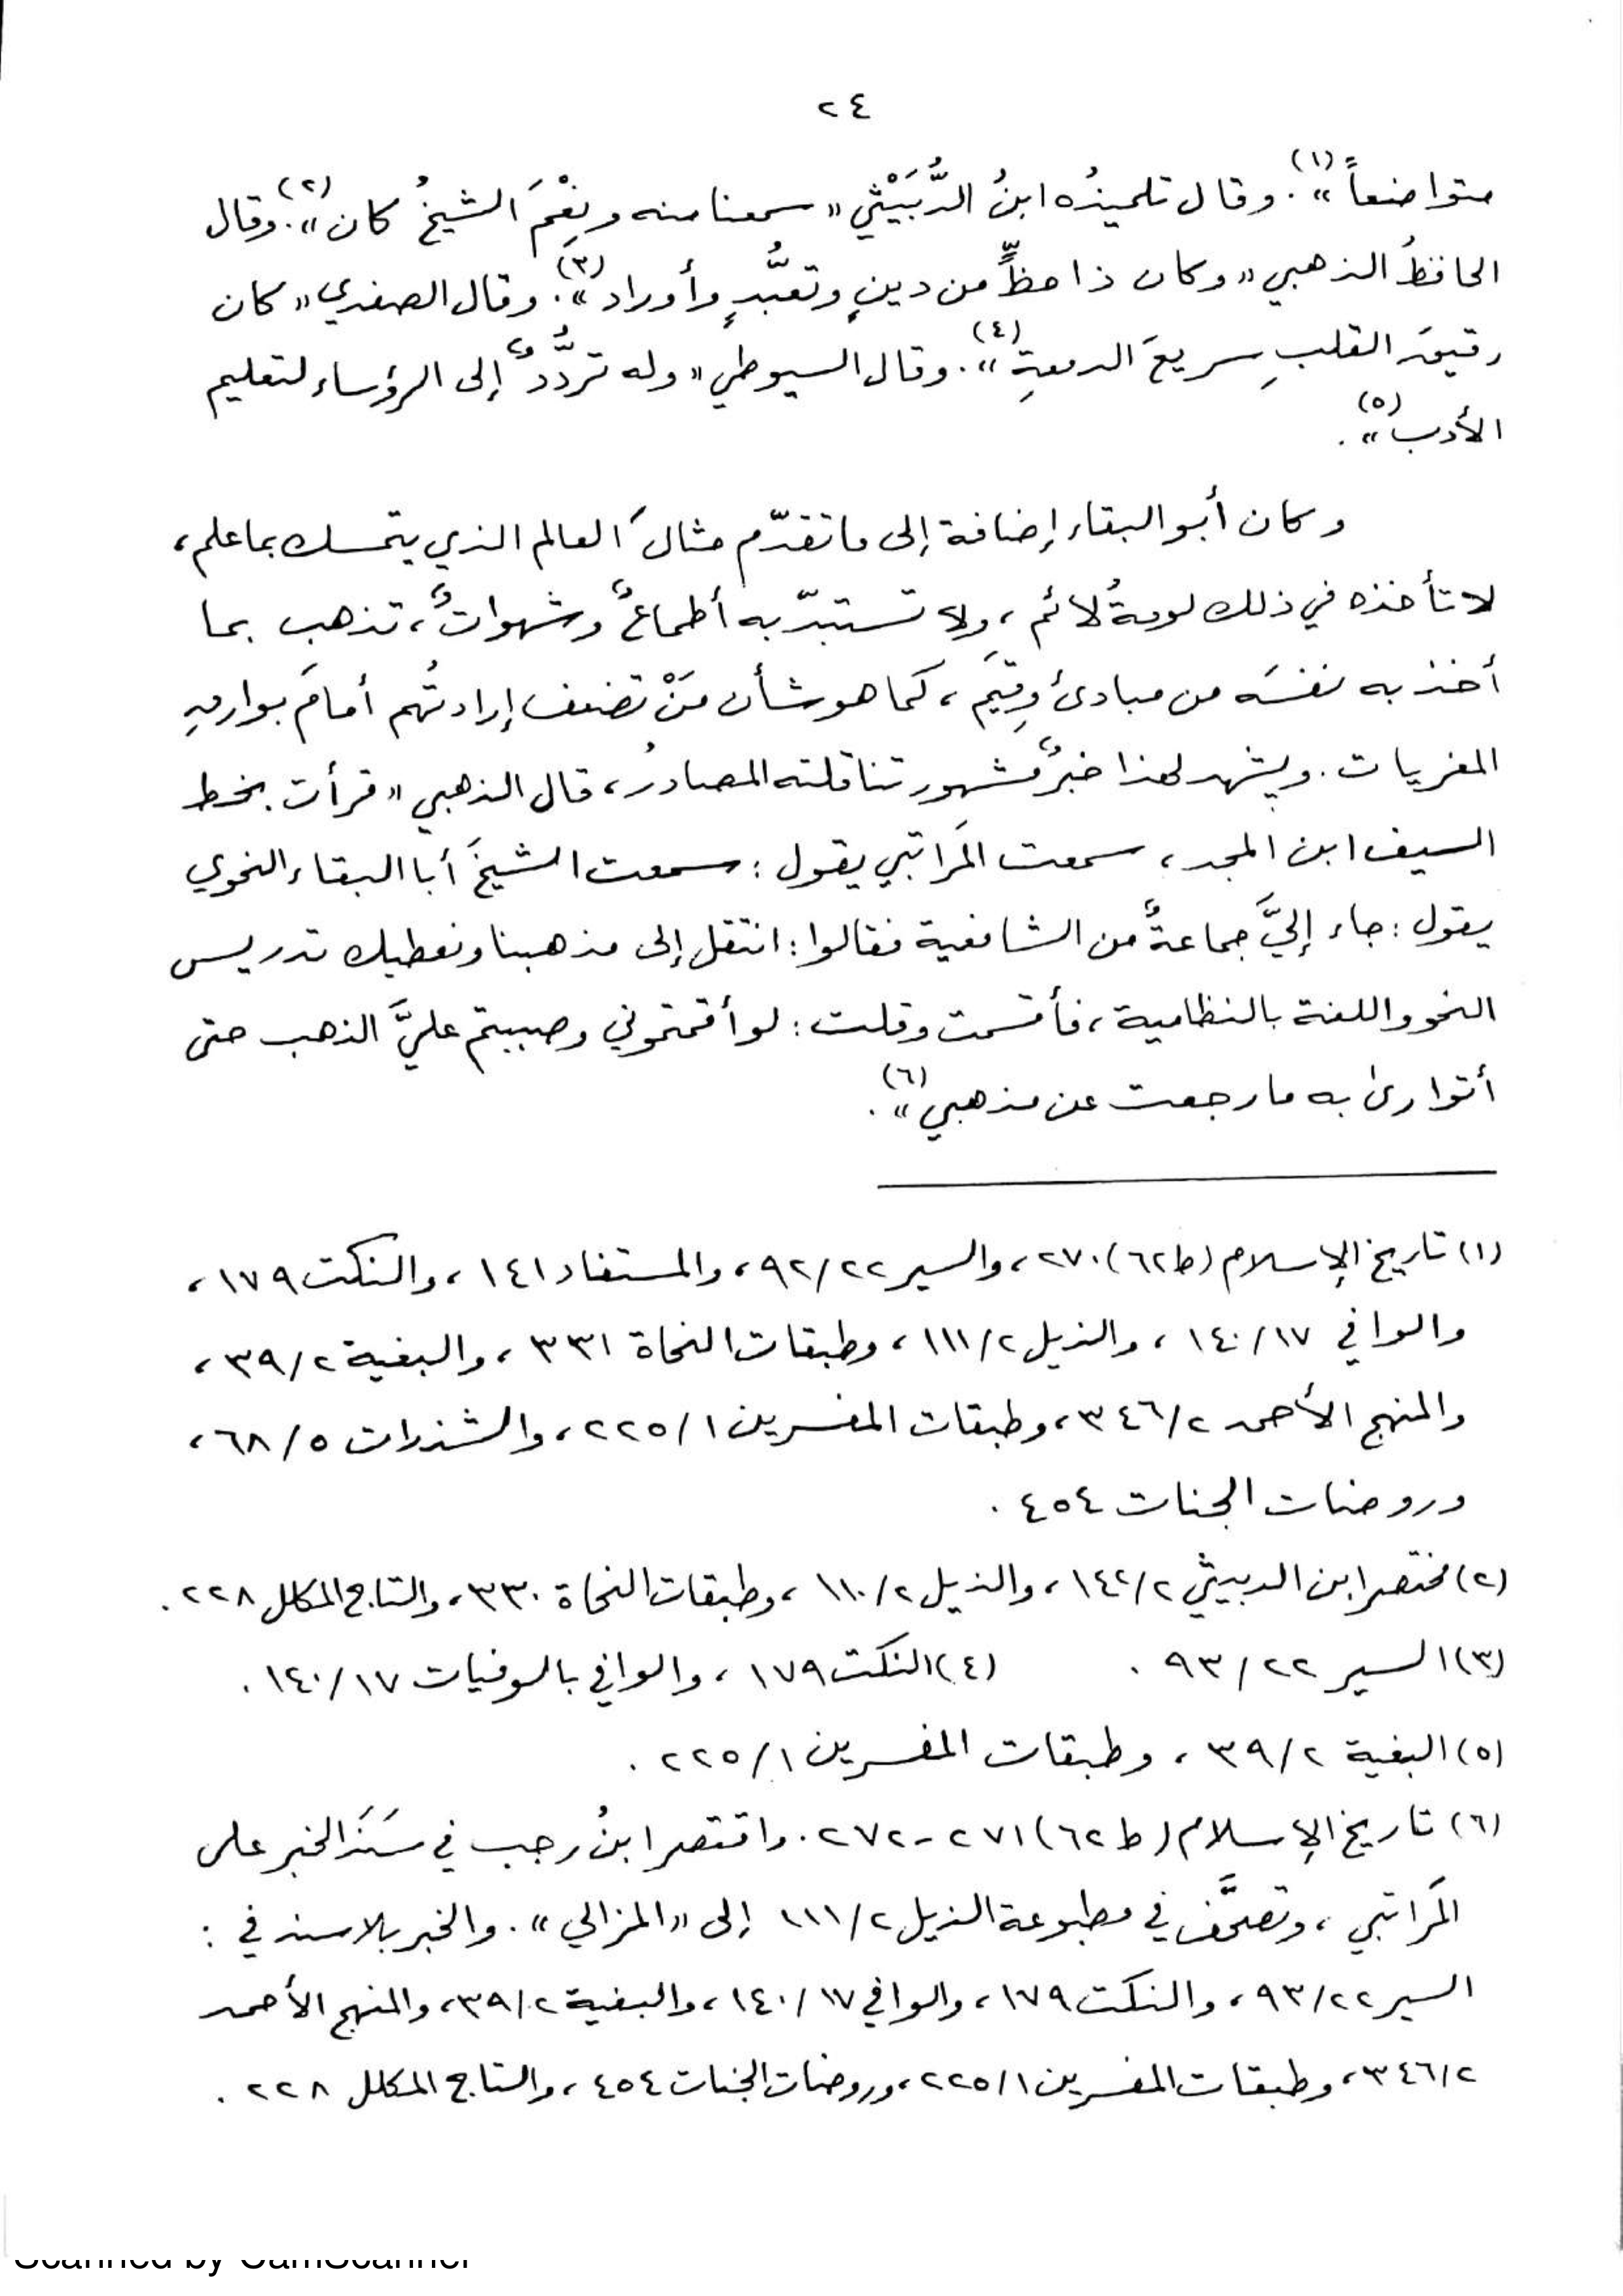 ٢٤
متواضعاً»(١). وقال تلميذُه ابنُ الدُّبَيْثي «سمعنا منه ونِعْمَ الشيخُ كان»(٢). وقال
الحافظُ الذهبي «وكان ذا حظٍّ من دينٍ وتعبُّدٍ وأوراد»(٣). وقال الصفدي «كان
رقيقَ القلبِ سريعَ الدمعةِ»(٤). وقال السيوطي «وله تردُّدٌ إلى الرؤساء لتعليم
الأدب»(٥).
وكان أبو البقاء إضافة إلى ما تقدّم مثالَ العالم الذي يتمسك بما علم،
لا تأخذه في ذلك لومةُ لائم، ولا تستبدّ به أطماعٌ وشهواتٌ، تذهب بما
أخذ به نفسَه من مبادئ وقِيَم، كما هو شأن مَنْ تضعف إرادتُهم أمامَ بوارقِ
المغريات. ويشهد لهذا خبرٌ مشهور تناقلته المصادرُ، قال الذهبي «قرأت بخط
السيف ابن المجد، سمعت المَراتبي يقول: سمعت الشيخَ أبا البقاء النحوي
يقول: جاء إليَّ جماعةٌ من الشافعية فقالوا: انتقل إلى مذهبنا ونعطيك تدريس
النحو واللغة بالنظامية، فأقسمت وقلت: لو أقمتموني وصببتم عليَّ الذهب حتى
أتوارى به ما رجعت عن مذهبي»(٦).
(١) تاريخ الإسلام (ط٦٢) ٢٧٠، والسير ٩٢/٢٢، والمستفاد ١٤١، والنكت ١٧٩،
والوافي ١٤٠/١٧، والذيل ١١١/٢، وطبقات النحاة ٣٣١، والبغية ٣٩/٢،
والمنهج الأحمد ٣٤٦/٢، وطبقات المفسرين ٢٢٥/١، والشذرات ٦٨/٥،
وروضات الجنات ٤٥٤.
(٢) مختصر ابن الدبيثي ١٤٢/٢، والذيل ١١٠/٢، وطبقات النحاة ٣٣٠، والتاج المكلل ٢٢٨.
(٣) السير ٩٣/٢٢. (٤) النكت ١٧٩، والوافي بالوفيات ١٤٠/١٧.
(٥) البغية ٣٩/٢، وطبقات المفسرين ٢٢٥/١.
(٦) تاريخ الإسلام (ط ٦٢) ٢٧١-٢٧٢. واقتصر ابنُ رجب في سَنَد الخبر على
المَراتبي، وتصحَّف في مطبوعة الذيل ١١١/٢ إلى «المزالي». والخبر بلا سند في:
السير ٩٣/٢٢، والنكت ١٧٩، والوافي ١٤٠/١٧، والبغية ٣٩/٢، والمنهج الأحمد
٣٤٦/٢، وطبقات المفسرين ٢٢٥/١، وروضات الجنات ٤٥٤، والتاج المكلل ٢٢٨.
Scanned by CamScanner